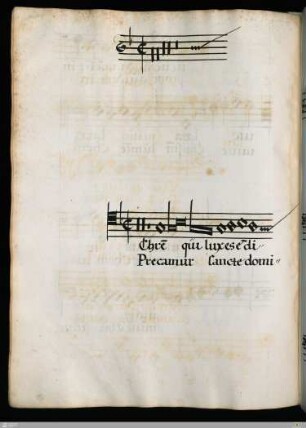 Chr̄e qui lux es et di
Precamur sancte domi